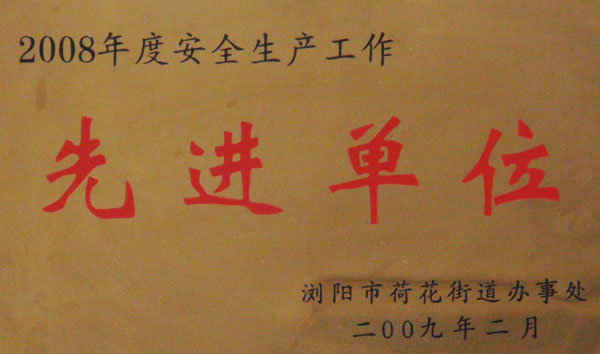 2008年度安全生产工作
先进单位
浏阳市荷花街道办事处
二00九年二月